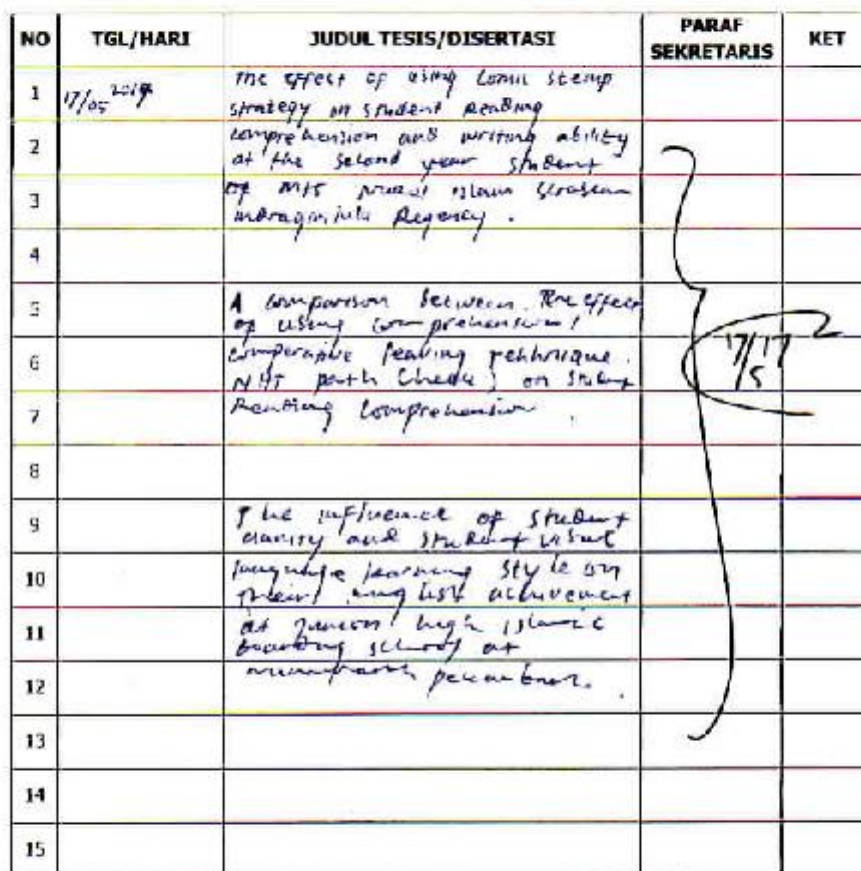 NO TGL/HARI JUDUL TESIS/DISERTASI PARAF SEKRETARIS KET
1 17/05 The effect of using Comic
strategy on student Reading
2 comprehension and writing ability
at the second year student
3 of MTS Islam
Regency.
4
5 A comparison between The effect
of using comprehension
6 technique
NHT check) on student
7 Reading Comprehension
8
9 The influence of student
and student visual
10 language learning style on
their english achivement
11 at junior high islamic
boarding school at
12
13
14
15
17/5 17